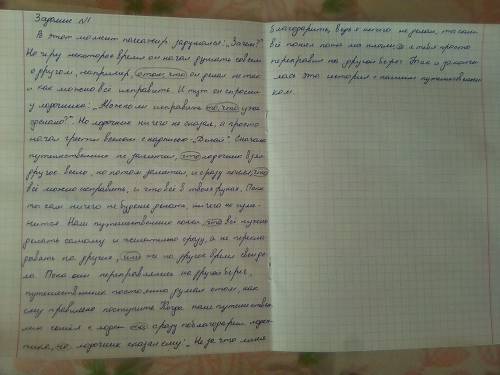 Задание №1
В этот момент пассажир задумался: „Зачем?"
Но через некоторое время он начал думать совсем
о другом, например, о том, что он делал не так
и как можно все исправить. И тут он спросил
у лодочника: „Можно ли исправить то, что уже
сделано?". Но лодочник ничего не сказал, а просто
начал грести веслом с надписью „Делай". Сначала
путешественник не заметил, что лодочник взял
другое весло, но потом заметил, и сразу понял, что
всё можно исправить, и что всё в твоих руках. Пока
ты сам ничего не будешь делать, ничего не изме-
нится. Наш путешественник понял, что всё нужно
делать самому и желательно сразу, а не
на других, или же на другое время
Пока они переправлялись на другой берег,
путешественник постоянно думал о том, как
ему правильно поступить. Когда наш путешествен-
ник сошёл с лодки он сразу поблагодарил лодоч-
ника, но лодочник сказал ему: „Не за что меня
благодарить, ведь я ничего не делал, ты сам
всё понял пока мы плыли, а я тебя просто
переправил на другой берег. Так и закончи-
лась эта история с нашим путешественни-
ком.